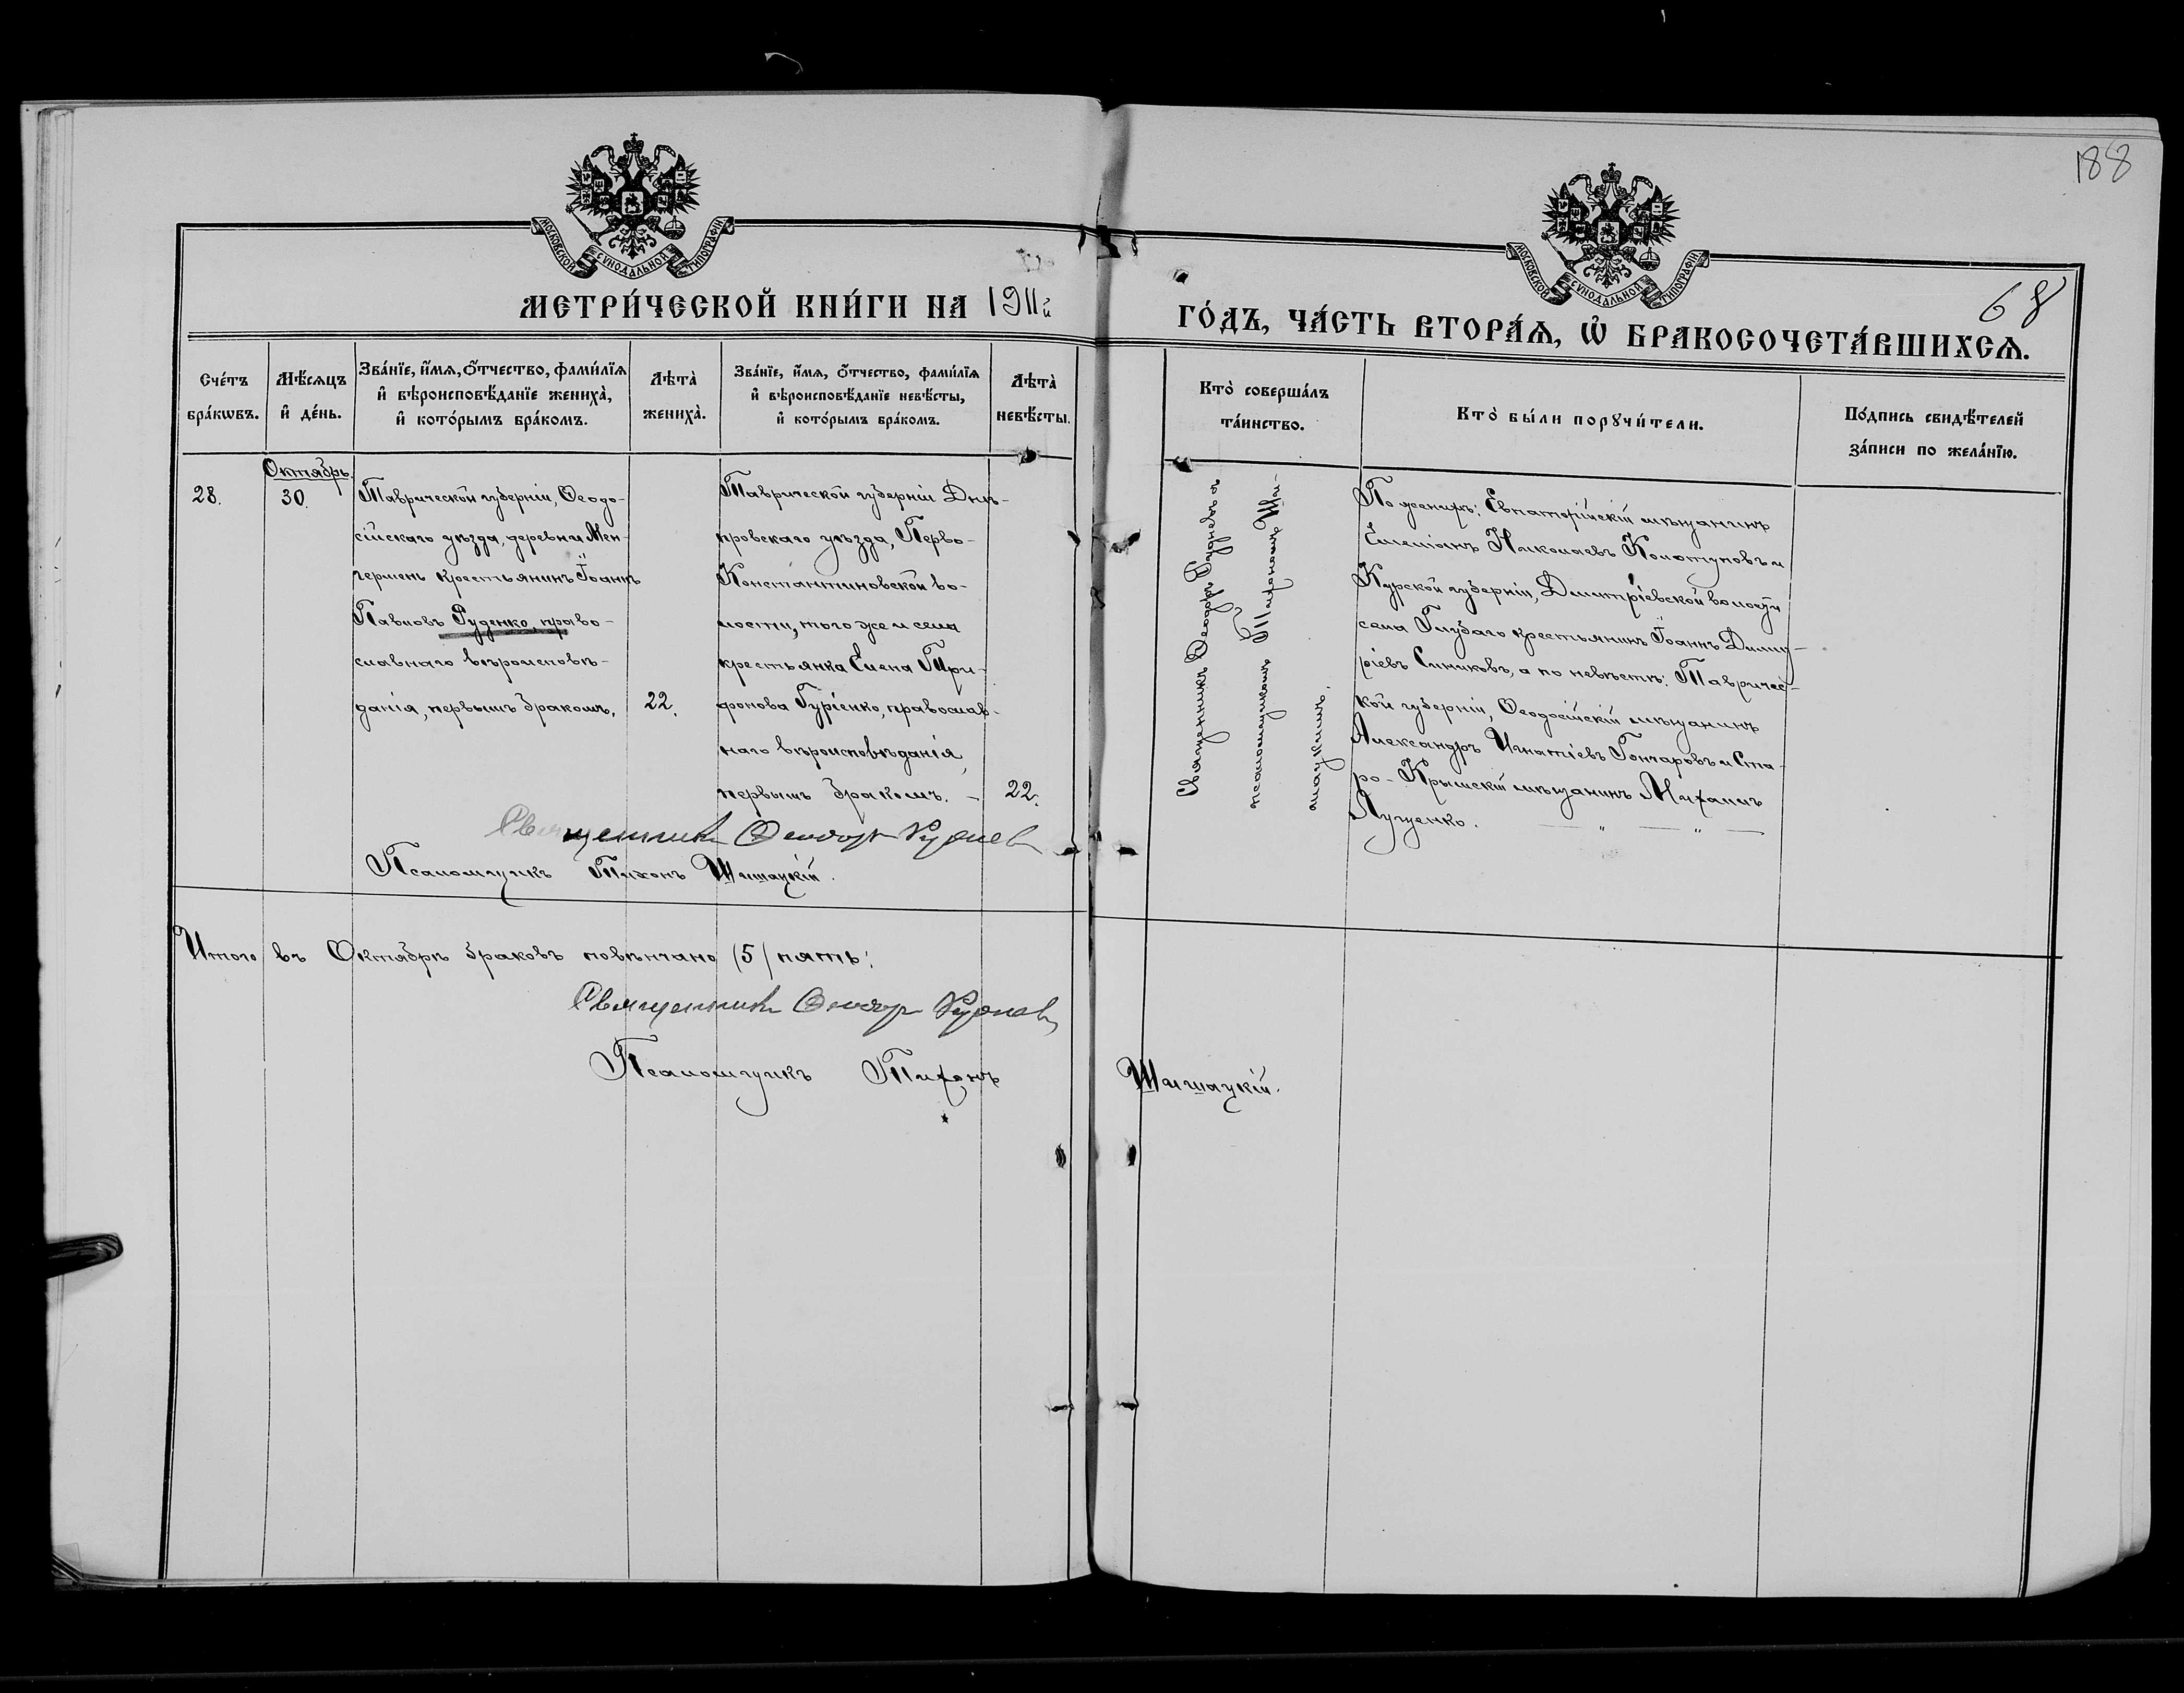 188
МОСКОВСКОЙ СУНОДАЛЬНОЙ ТИПОГРАФІИ
МОСКОВСКОЙ СУНОДАЛЬНОЙ ТИПОГРАФІИ
68
МЕТРИ́ЧЕСКОЙ КНИ́ГИ НА 1911й
ГО́ДЪ, ЧА́СТЬ ВТОРА́Ѧ, Ѡ҆ БРАКОСОЧЕТА́ВШИХСѦ.
Сче́тъ
бра́кѡвъ.
Мѣ́сѧцъ
и҆ де́нь.
Зва́нїе, и҆́мѧ, ѻ҆́тчество, фами́лїѧ
и҆ вѣроисповѣ́данїе жениха̀,
и҆ кото́рымъ бра́комъ.
Лѣта̀
жениха̀.
Зва́нїе, и҆́мѧ, ѻ҆́тчество, фами́лїѧ
и҆ вѣроисповѣ́данїе невѣ́сты,
и҆ кото́рымъ бра́комъ.
Лѣта̀
невѣ́сты.
Кто̀ соверша́лъ
та́инство.
Кто̀ бы́ли порꙋчи́тели.
По́дпись свидѣ́телей
за́писи по жела́нїю.
28.
Октябрь
30.
Таврической губерніи, Ѳеодо-
сійскаго уѣзда, деревни Мен-
гермень крестьянинъ Іоаннъ
Павловъ Руденко, право-
славнаго вѣроисповѣ-
данія, первымъ бракомъ.
22.
Таврической губерніи Днѣ-
провскаго уѣзда, Перво-
Константиновской во-
лости, того же и села
крестьянка Елена Три-
фонова Гуріенко, православ-
наго вѣроисповѣданія,
первымъ бракомъ. –
22.
Священникъ Ѳеодоръ Рудневъ съ
псаломщикомъ Тихономъ Ши-
шацкимъ.
По женихѣ: Евпаторійскій мѣщанинъ
Емеліанъ Николаевъ Колтуновъ и
Курской губерніи, Димитріевской волости
села Глубаго крестьянинъ Іоаннъ Димит-
ріевъ Синиковъ, а по невѣстѣ: Тавричес-
кой губерніи, Ѳеодосійскій мѣщанинъ
Александръ Игнатіевъ Гончаровъ и Ста-
ро-Крымскій мѣщанинъ Михаилъ
Луценко. — „ — „ —
Священникъ Ѳеодоръ Руднев
Псаломщикъ Тихонъ Шишацкій.
Итого въ Октябрѣ браковъ повѣнчано (5) пять:
Священникъ Ѳеодоръ Рудневъ
Псаломщикъ Тихонъ Шишацкій.